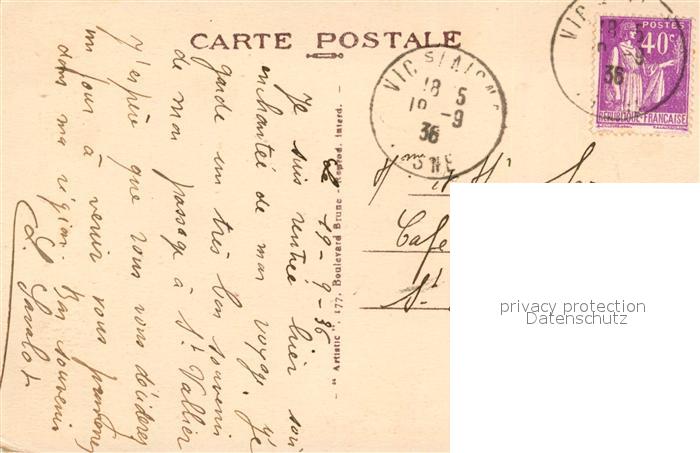 CARTE POSTALE
Le 19-9-36
Je suis rentrée hier soir
enchantée de mon voyage. J'e
garde un très bon souvenir
de mon passage à St Vallier
J'espère que vous vous déciderez
un jour à venir vous promener
dans ma région. Bon souvenir
"Artistic", 177, Boulevard Brune - Reprod. interd.
VIC S/AISNE
18 5
19 -9
36
AISNE
VIC
18 5
19 -9
36
POSTES
40c
REPUBLIQUE FRANÇAISE
Mme et Mr
Café
St
privacy protection
Datenschutz